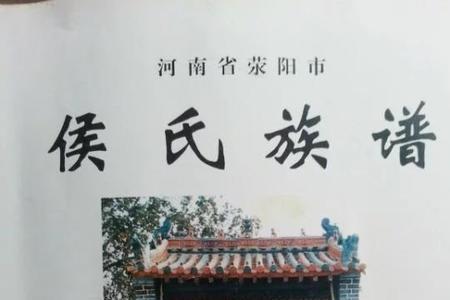 河南省荥阳市
侯氏族谱